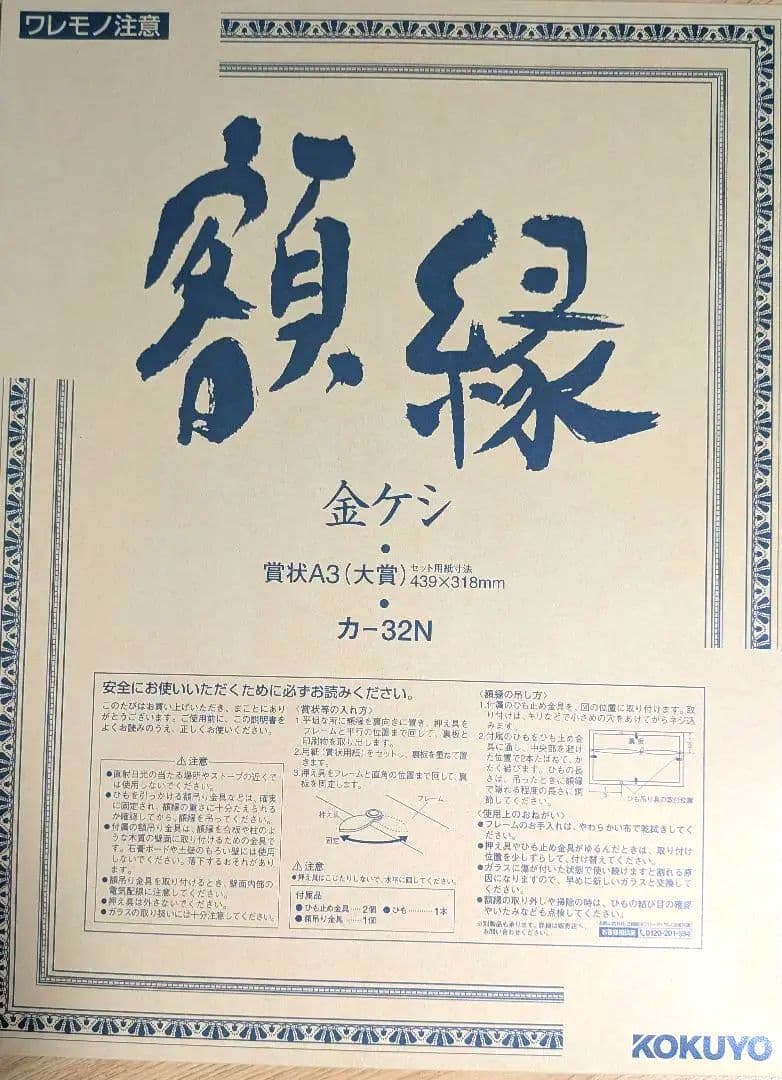 ワレモノ注意
額縁
金ケシ
●
賞状A3(大賞) セット用紙寸法
439×318mm
●
カ-32N
安全にお使いいただくために必ずお読みください。
このたびはお買い上げいただき、まことにあり
がとうございます。ご使用前に、この説明書を
よくお読みのうえ、正しくお使いください。
⚠注意
●直射日光の当たる場所やストーブの近くで
は使用しないでください。
●ひもを引っかける額吊り金具などは、確実
に固定され、額縁の重さに十分たえられる
か確認してから、額縁を吊ってください。
●付属の額吊り金具は、額縁を合板や柱のよ
うな木質の壁面に取り付けるための金具で
す。石膏ボードや土壁のもろい壁には使用
しないでください。落下するおそれがあり
ます。
●額吊り金具を取り付けるとき、壁面内部の
電気配線に注意してください。
●押え具は外さないでください。
●ガラスの取り扱いには十分注意してください。
〈賞状等の入れ方〉
1.平坦な所に額縁を裏向きに置き、押え具を
フレームと平行の位置まで回して、裏板と
印刷物を取り出します。
2.用紙(賞状用紙)をセットし、裏板を重ねて置
きます。
3.押え具をフレームと直角の位置まで回して、裏
板を固定します。
フレーム
押え具
固定
⚠注意
●押え具はこじたりしないで、水平に回してください。
付属品
●ひも止め金具……2個 ●ひも……1本
●額吊り金具……1個
〈額縁の吊し方〉
1.付属のひも止め金具を、図の位置に取り付けます。取
り付けは、キリなどで小さめの穴をあけてからネジ込
みます。
2.付属のひもをひも止め金
具に通し、中央部を避け
た位置で2本たばねて、か
たく結びます。ひもの長
さは、吊ったときに額縁
で隠れる程度の長さに調
節してください。
裏板
ひも吊り具の取付位置
〈使用上のおねがい〉
●フレームのお手入れは、やわらかい布で乾拭きしてく
ださい。
●押え具やひも止め金具がゆるんだときは、取り付け
位置を少しずらして、付け替えてください。
●ガラスに傷が付いた状態で使い続けますと割れる原
因になりますので、早めに新しいガラスと交換してく
ださい。
●額縁の取り外しや掃除の時は、ひもの結び目の確認
やいたみなども点検してください。
お客様相談室 0120-201-594
KOKUYO